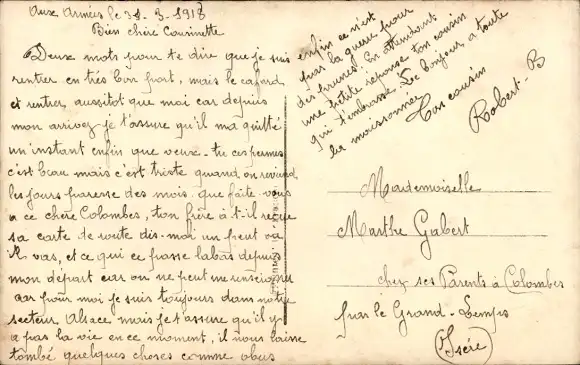 Aux Armées le 31. 3. 1918
Bien chère Cousinette
Deux mots pour te dire que je suis
rentrer en très bon port, mais le cafard
et rentrer aussitot que moi car depuis
mon arrivez je t'assure qu'il m'a quitté
un instant enfin que veux-tu ces permes
c'est beau mais c'est triste quand on revient
les jours paresse des mois. que faite-vous
a ce chère Colombes, ton frère à-t-il reçue
sa carte de route dis-moi un peut ou
il vas, et ce qui ce passe labas depuis
mon départ car on ne peut me renseigner
car pour moi je suis toujours dans notre
secteur Alsace mais je t'assure qu'il y
a pas la vie en ce moment, il nous laisse
tombé quelques choses comme obus
enfin ce n'est
pas la guerre pour
des prunes. En attendant
une petite réponse ton cousin
qui t'embrasse. Le bonjour a toute
la maisonnée
Ton cousin
Robert. B
Mademoiselle
Marthe Gabert
chez ses Parents à Colombes
par le Grand-Lemps
(Isère)